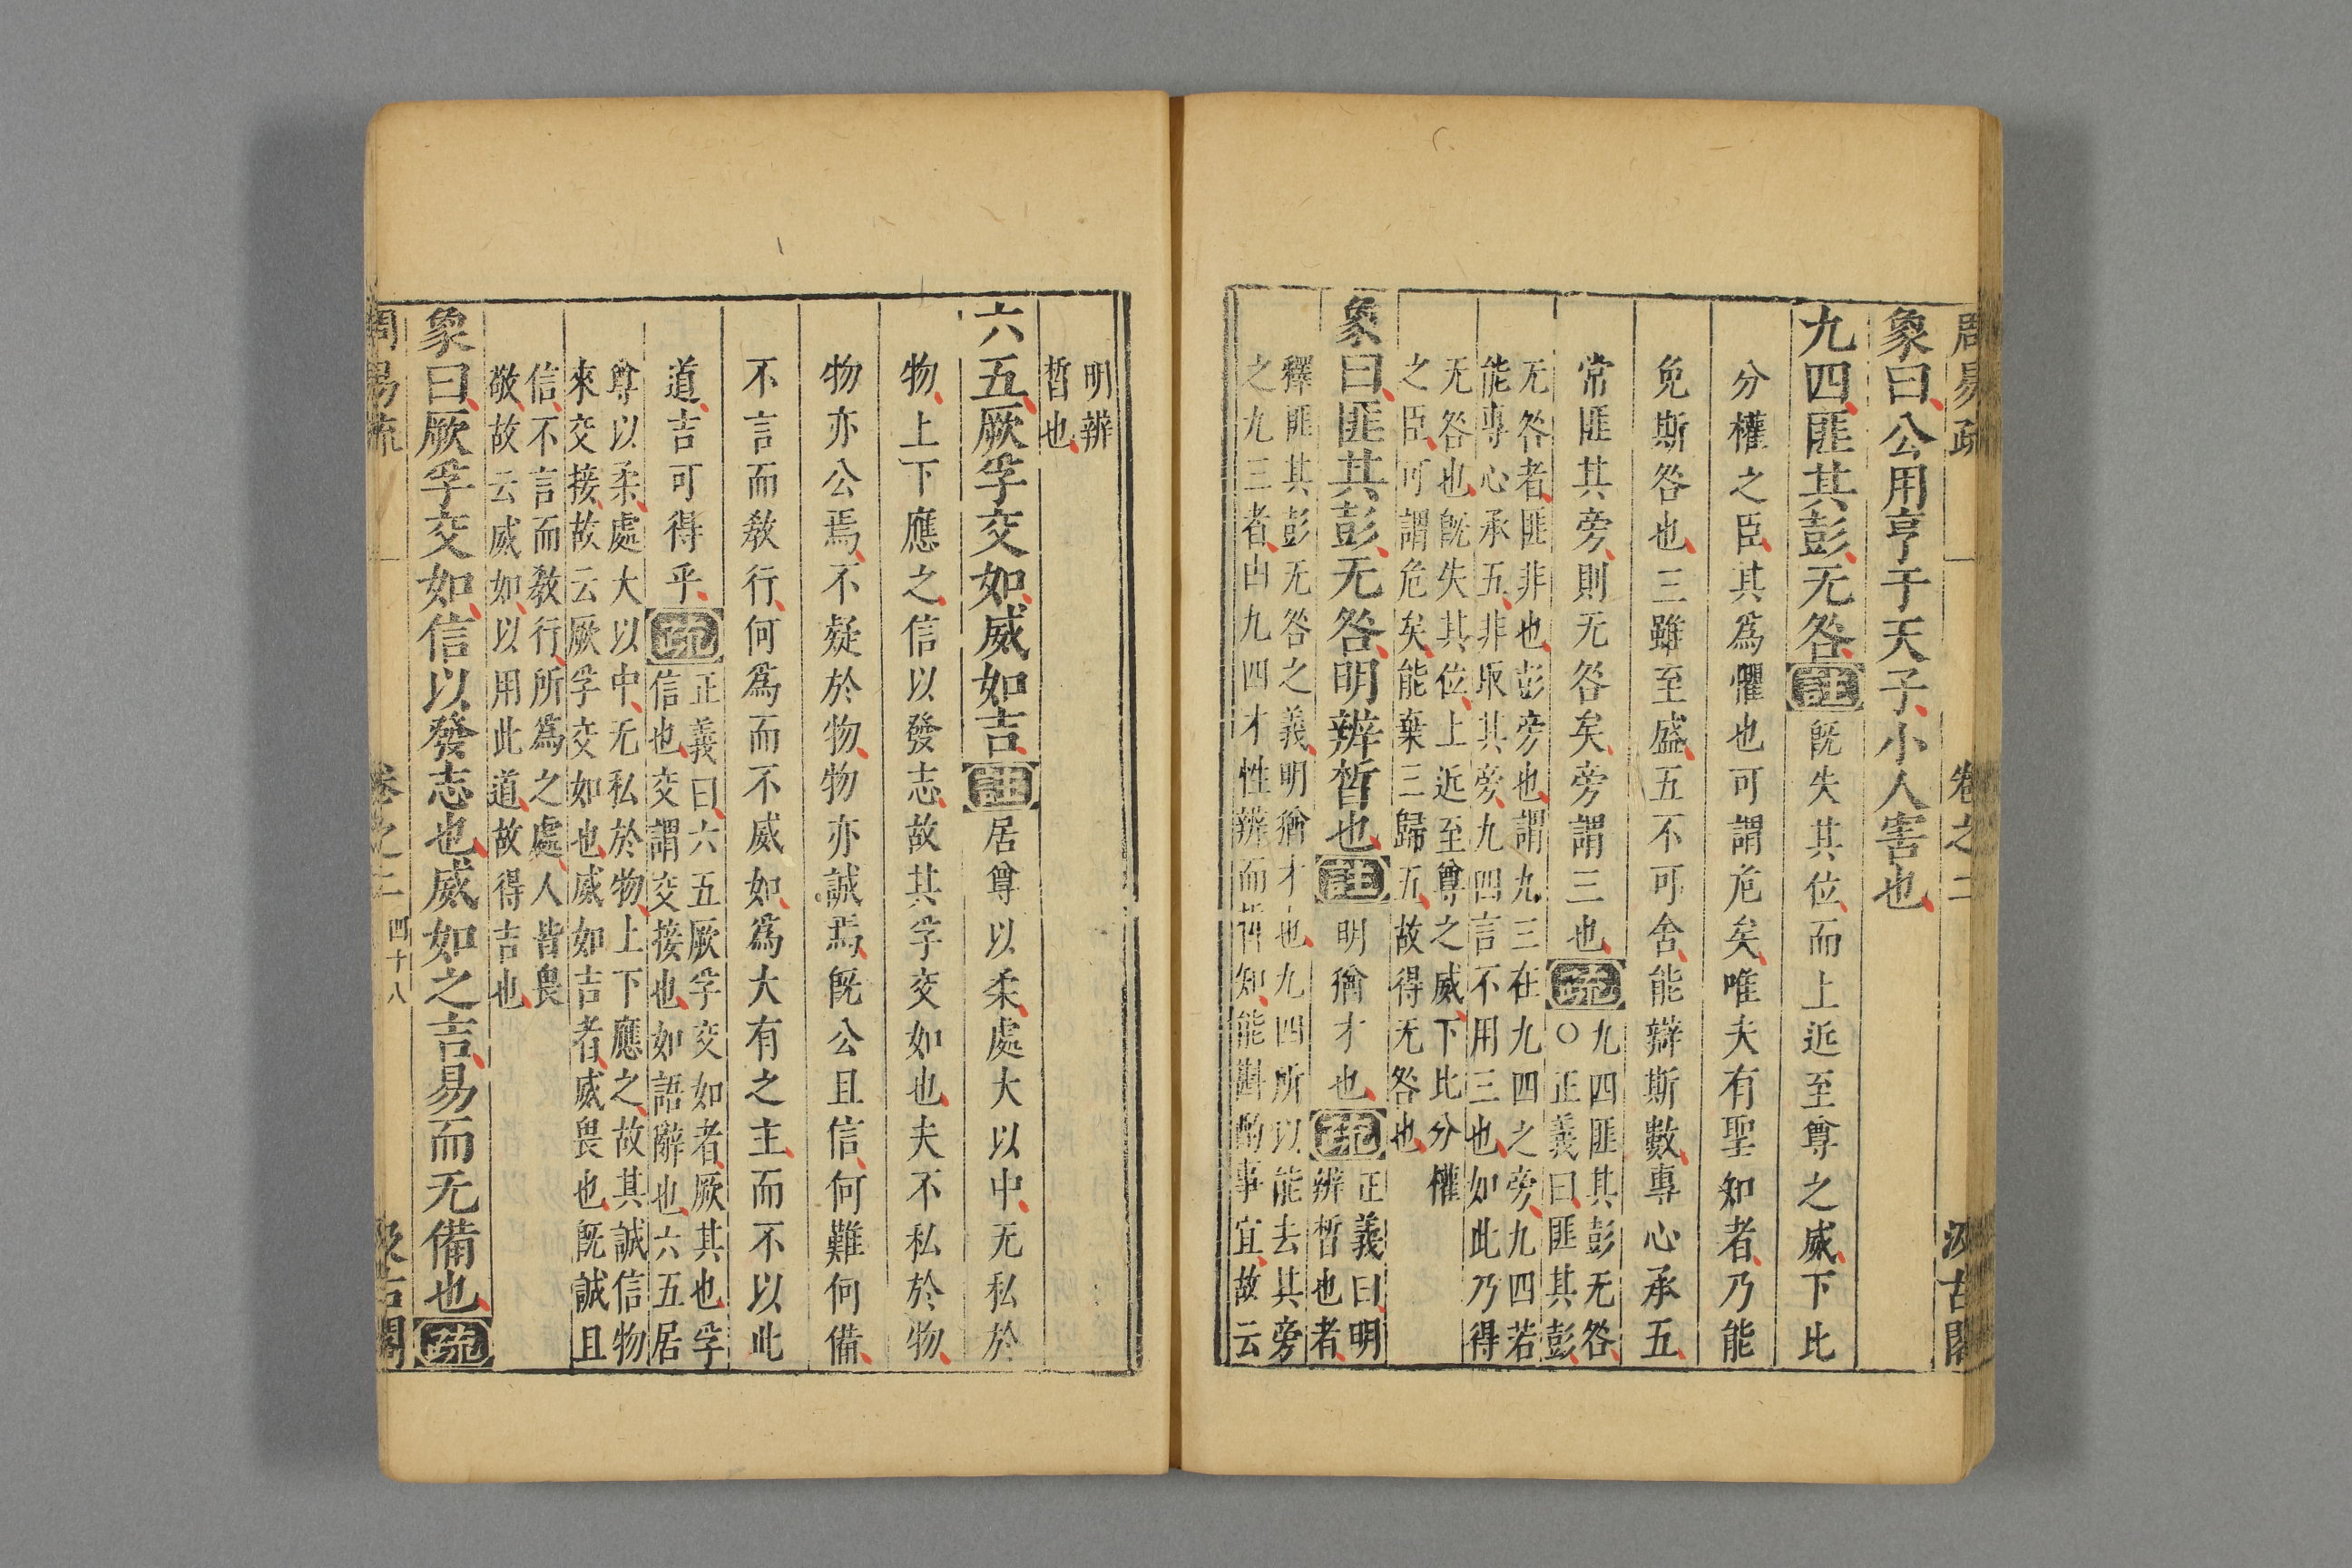 周易疏 卷之二 汲古閣
象曰公用亨于天子小人害也
九四匪其彭无咎註既失其位而上近至尊之威下比
分權之臣其爲懼也可謂危矣唯夫有聖知者乃能
免斯咎也三雖至盛五不可舍能辯斯數專心承五
常匪其旁則无咎矣旁謂三也疏九四匪其彭无咎
○正義曰匪其彭
无咎者匪非也彭旁也謂九三在九四之旁九四若
能專心承五非取其旁九四言不用三也如此乃得
无咎也既失其位上近至尊之威下比分權
之臣可謂危矣能棄三歸五故得无咎也
象曰匪其彭无咎明辨晢也註明猶才也疏正義曰明
辨晢也者
釋匪其彭无咎之義明猶才也九四所以能去其旁
之九三者由九四才性辨而晢知能斟酌事宜故云
明辨
晢也
六五厥孚交如威如吉註居尊以柔處大以中无私於
物上下應之信以發志故其孚交如也夫不私於物
物亦公焉不疑於物物亦誠焉既公且信何難何備
不言而教行何爲而不威如爲大有之主而不以此
道吉可得乎疏正義曰六五厥孚交如者厥其也孚
信也交謂交接也如語辭也六五居
尊以柔處大以中无私於物上下應之故其誠信物
來交接故云厥孚交如也威如吉者威畏也既誠且
信不言而教行所爲之處人皆畏
敬故云威如以用此道故得吉也
象曰厥孚交如信以發志也威如之吉易而无備也疏
周易疏 卷之二 四十八 汲古閣